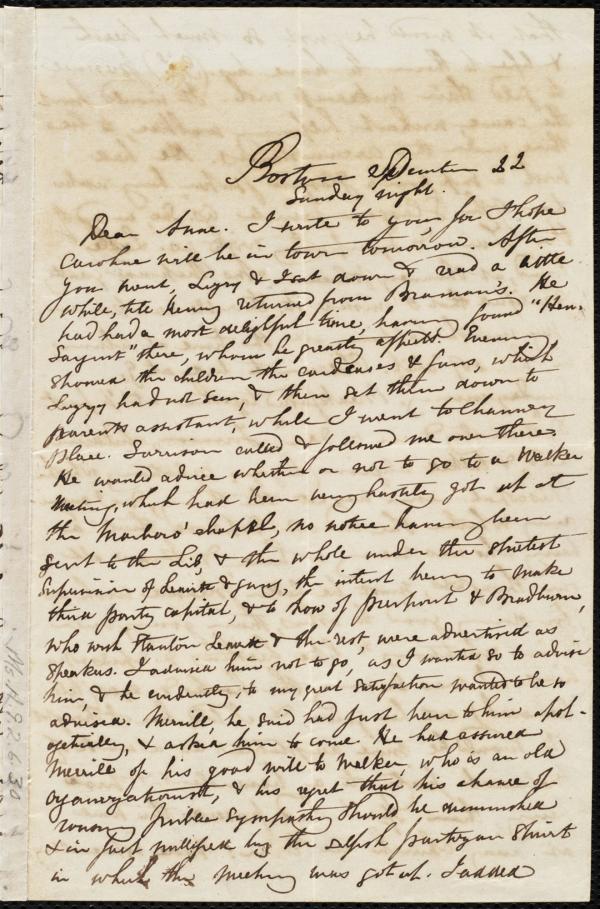 Boston December 22
Sunday night.
Dear Anne. I write to you, for I hope
Caroline will be in town tomorrow. After
you went, Lizzy & I sat down & read a little
while, till Henry returned from Braman's. He
had had a most delightful time, having found "Hen.
Sargent" there, whom he greatly affects. Evening
showed the children the cardcases & fans, which
Lizzy had not seen, & then set them down to
parents assistant, while I went to Chauncy
Place. Garrison called & followed me over there.
He wanted advice whether or not to go to a Walker
Meeting, which had been very hastily got up at
the Marlboro' chapel, no notice having been
sent to the Lib, & the whole under the strictest
supervision of Leavitt & gang, the intent being to make
third party capital, & to show of Pierpont & Bradburn,
who with Stanton Leavitt & the rest, were advertised as
speakers. I advised him not to go, as I wanted so to advise
him, & he evidently, to my great satisfaction wanted to be so
advised. Merrill, he said had just been to him apol-
ogetically, & asked him to come. He had assured
Merrill of his good will to Walker, who is an old
organizationist, & his regret that his chance of
public sympathy should be diminished
& in fact nullified by the selfish partizan spirit
in which the meeting was got up. I added
Ms.A.9.2.6.30